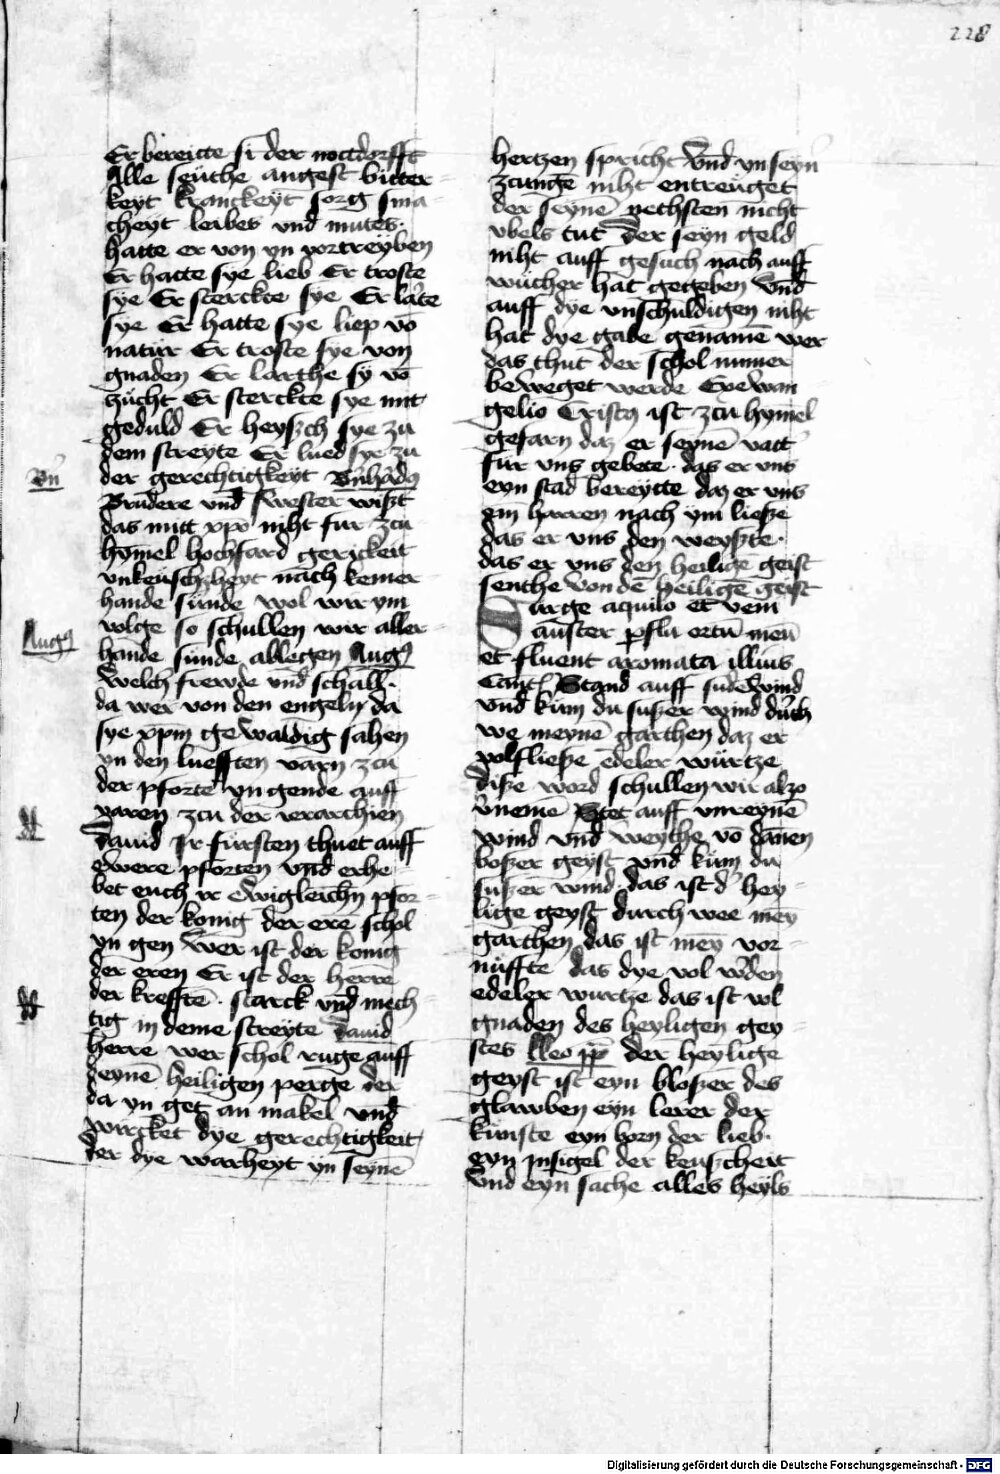 228
Er bereitte si der nottdorfft
Alle seuche angest bitter
keyt kranckeyt sorg sma
cheyt leibes vnd mutes.
hatte er von yn vortreyben
Er hatte sye lieb Er troste
sye Er sterckte sye Er larte
sye Er hatte sye liep vō
natur Er troste sye von
gnaden Er larthe sy vō
zucht Er sterckte sye mit
geduld Er heyszch sye zu
dem streyte Er lued sye zu
der gerechtigkeyt
Brudere vnd swester wißt
das mitt xpō niht fur zcu
hymel hochfard gerickeit
vnkeuschheyt nach keiner
hande sunde wol wir ym
volge so schullen wir aller
hande sunde ablegen Augꝰ
welch frewde vnd schall.
da wer von den engeln da
sye xp̄m gewaldig sahen
yn den luefften varn zcu
der pforte yn gende auff
varen zcu der ierarchien
dauid Ir fursten thuet auff
ewere pforten vnd erhe
bet euch ir ewigleichn pfor
ten der konig der ere schol
yn gen wer ist der konig
der eren Er ist der herre
der krefftē. starck vnd mech
tig in deme streyte dauid
herre wer schol ruge auff
deynē heiligen perge der
da yn get an makel vnd
wircket dye gerechtigkeit
der dye warheyt yn seynē
Augꝰ
hertzen spricht vnd yn seyn
zcunge niht entreuget
der seynē nechsten nicht
vbels tut der seyn geld
niht auff gesuch nach auff
wucher hat gegeben vnd
auff dye vnschuldigen niht
hat dye gabe genamē wer
das thut der schol nimer
beweget werde Ewan
gelio Cristꝰ ist zcu hymel
gefarn daz er seynē vatt
fur vns gebete. das er vns
eyn stad bereytte daz er vns
ym harren nach ym ließe
das er vns den weyßte.
das er vns den heiligē geist
senthe von dē heiligē geist
Surge aquilo et veni
auster pfla ortū meū
et fluent aromata illius
Cant. Stand auff sudewind
vnd kum du sußer wind durch
we meynē garthen daz er
volfließe edeler wurtze
diße word schullen wir alzo
v̄nemē Stet auff vnreynē
wind vnd weythe vō dānen
boßer geyst vnd kum du
sußer wind das ist d' hey
lige geyst durch wee mey
garthen das ist mey vor
nuffte das dye vol w̄den
edeler wurtze das ist vol
gnaden des heyligen gey
stes lleo pp̄ der heylige
geyst ist eyn bloßer des
glawben eyn lerer der
kunste eyn born der lieb.
eyn jnsigel der keuscheit
vnd eyn sache alles heyls
Digitalisierung gefördert durch die Deutsche Forschungsgemeinschaft - DFG